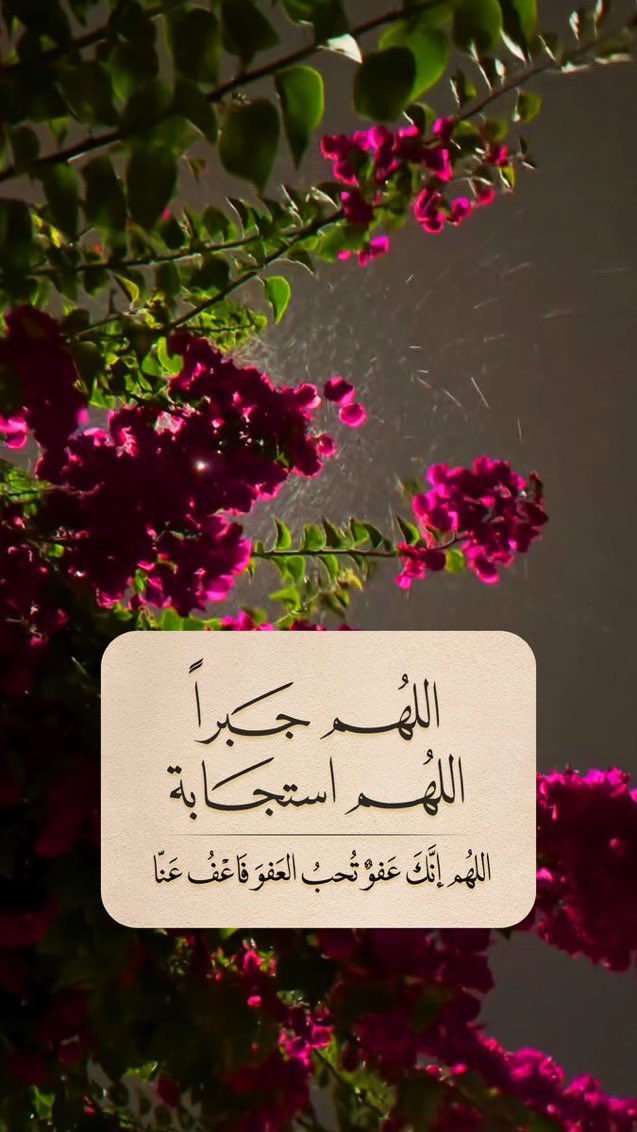 اللهُم جَبراً
اللهُم استجَابة
اللهُم إنَّكَ عَفوٌ تُحبُ العَفوَ فَاعْفُ عَنّا